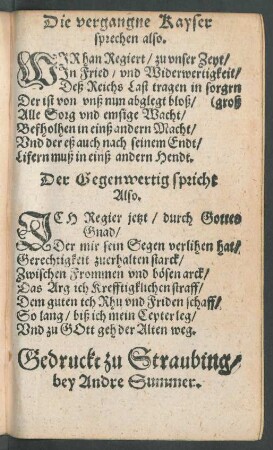 Die vergangne Kayser
sprechen also.
WIR han Regiert/ zu vnser Zeyt/
In Fried/ vnd Widerwertigkeit/
Deß Reichs Last tragen in sorgen
Der ist von vnß nun abglegt bloß/ (groß
Alle Sorg vnd emsige Wacht/
Befholhen in einß andern Macht/
Vnd der eß auch nach seinem Endt/
Lifern muß in einß andern Hendt.
Der Gegenwertig spricht
Also.
ICH Regier jetzt/ durch Gottes
Gnad/
Der mir sein Segen verlihen hat/
Gerechtigkeit zuerhalten starck/
Zwischen Frommen vnd bösen arck/
Das Arg ich Krefftigklichen straff/
Dem guten ich Rhu vnd Friden schaff/
So lang/ biß ich mein Cepter leg/
Vnd zu GOtt geh der Alten weg.
Gedruckt zu Straubing/
bey Andre Summer.